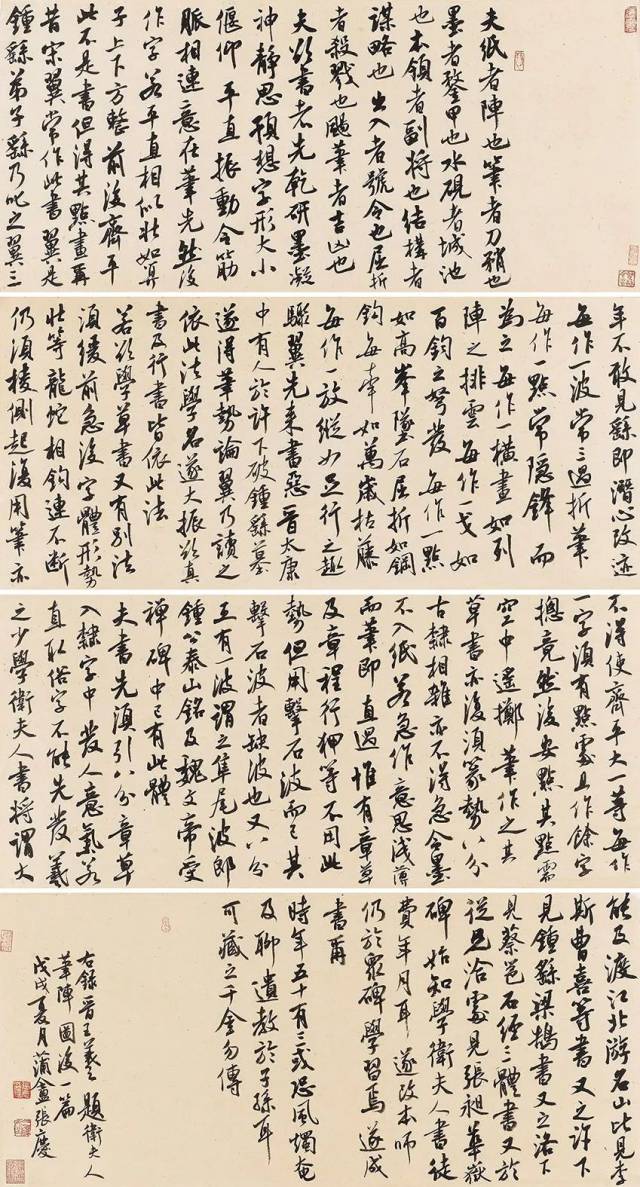 夫紙者陣也筆者刀矟也
墨者鍪甲也水硯者城池
也本領者副將也結構者
謀略也出入者號令也屈折
者殺戮也颺筆者吉凶也
夫欲書者先乾研墨凝
神靜思預想字形大小
偃仰平直振動令筋
脈相連意在筆先然後
作字若平直相似狀如算
子上下方整前後齊平
此不是書但得其點畫耳
昔宋翼常作此書翼是
鍾繇弟子繇乃叱之翼三
年不敢見繇即潛心改迹
每作一波常三過折筆
每作一點常隱鋒而
為之每作一橫畫如列
陣之排雲每作一戈如
百鈞之弩發每作一點
如高峯墜石屈折如鋼
鉤每牽如萬歲枯藤
每作一放縱如足行之趣
驟翼先來書惡晉太康
中有人於許下破鍾繇墓
遂得筆勢論翼乃讀之
依此法學名遂大振欲真
書及行書皆依此法
若欲學草書又有別法
須緩前急後字體形勢
狀等龍蛇相鉤連不斷
仍須棱側起復用筆亦
不得使齊平大一等每作
一字須有點處且作餘字
總竟然後安點其點需
空中遙擲筆作之其
草書亦復須篆勢八分
古隸相雜亦不得急令墨
不入紙若急作意思淺薄
而筆即直過惟有章草
及章程行狎等不用此
勢但用擊石波而已其
擊石波者缺波也又八分
更有一波謂之隼尾波即
鍾公泰山銘及魏文帝受
禪碑中已有此體
夫書先須引八分章草
入隸字中發人意氣若
直取俗字不能先發羲
之少學衛夫人書將謂大
能及渡江北游名山比見李
斯曹喜等書又之許下
見鍾繇梁鵠書又之洛下
見蔡邕石經三體書又於
從兄洽處見張昶華嶽
碑始知學衛夫人書徒
費年月耳遂改本師
仍於眾碑學習焉遂成
書爾
時年五十有三或恐風燭奄
及聊遺教於子孫耳
可藏之千金勿傳
右錄晉王羲之題衛夫人
筆陣圖後一篇
戊戌夏月蒲盦張慶